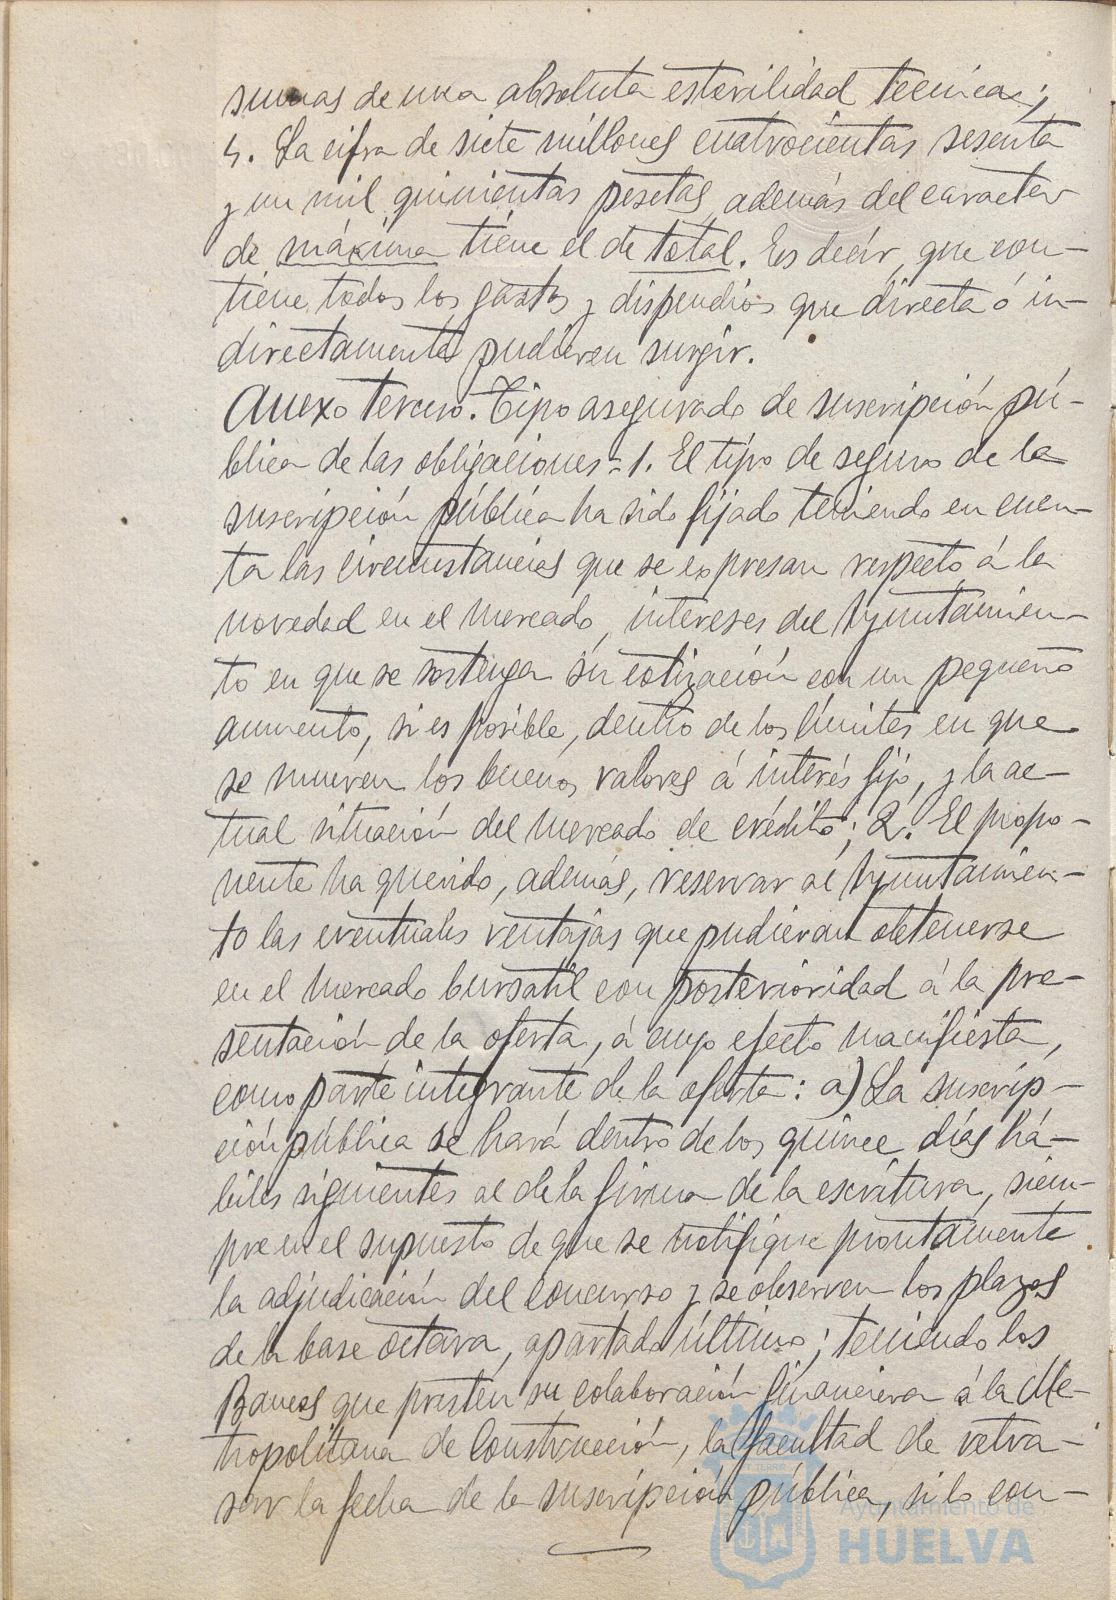 sumas de una absoluta esterilidad tecnica;
4. La cifra de siete millones cuatrocientas sesenta
y un mil quinientas pesetas, además del caracter
de máxima tiene el de total. Es decir, que con-
tiene todos los gastos y dispendios que directa ó in-
directamente pudieren surgir.
Anexo tercero. Tipo asegurado de suscripción pú-
blica de las obligaciones = 1. El tipo de seguro de la
suscripción pública ha sido fijado teniendo en cuen-
ta las circunstancias que se expresan respecto á la
novedad en el mercado, intereses del Ayuntamien-
to en que se sostenga su cotización con un pequeño
aumento, si es posible, dentro de los límites en que
se mueven los buenos valores á interés fijo, y la ac-
tual situación del mercado de crédito; 2. El propo-
nente ha querido, además, reservar al Ayuntamien-
to las eventuales ventajas que pudieran obtenerse
en el mercado bursatil con posterioridad á la pre-
sentación de la oferta, á cuyo efecto manifiesta,
como parte integrante de la oferta: a) La suscrip-
ción pública se hará dentro de los quince días há-
biles siguientes al de la firma de la escritura, siem-
pre en el supuesto de que se notifique prontamente
la adjudicación del concurso y se observen los plazos
de la base octava, apartado último; teniendo los
Bancos que presten su colaboración financiera á la Me-
tropolitana de Construcción, la facultad de retra-
sar la fecha de la suscripción pública, si lo con-
Ayuntamiento de
HUELVA